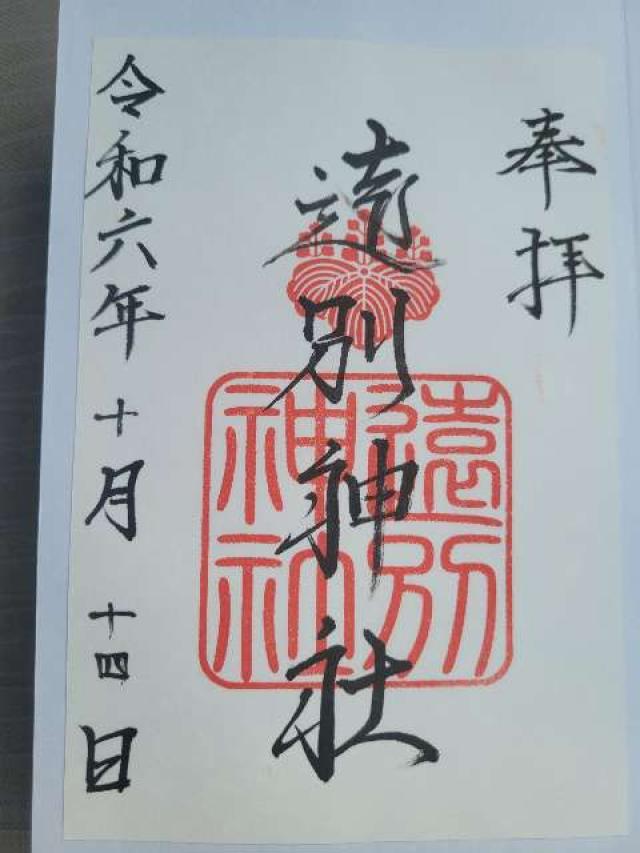 奉拝
遠別神社
遠別
神社
令和六年十月十四日